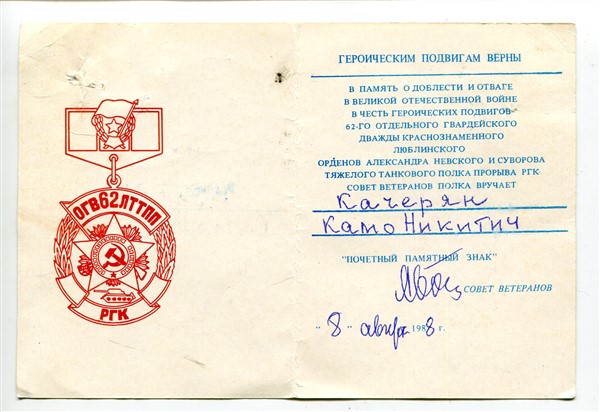 ОГВ62ЛТТПП
РГК
ГЕРОИЧЕСКИМ ПОДВИГАМ ВЕРНЫ
В ПАМЯТЬ О ДОБЛЕСТИ И ОТВАГЕ
В ВЕЛИКОЙ ОТЕЧЕСТВЕННОЙ ВОЙНЕ
В ЧЕСТЬ ГЕРОИЧЕСКИХ ПОДВИГОВ
62-ГО ОТДЕЛЬНОГО ГВАРДЕЙСКОГО
ДВАЖДЫ КРАСНОЗНАМЕННОГО
ЛЮБЛИНСКОГО
ОРДЕНОВ АЛЕКСАНДРА НЕВСКОГО И СУВОРОВА
ТЯЖЕЛОГО ТАНКОВОГО ПОЛКА ПРОРЫВА РГК
СОВЕТ ВЕТЕРАНОВ ПОЛКА ВРУЧАЕТ
Качерян
Камо Никитич
"ПОЧЕТНЫЙ ПАМЯТНЫЙ ЗНАК"
СОВЕТ ВЕТЕРАНОВ
"8" 1988 г.)